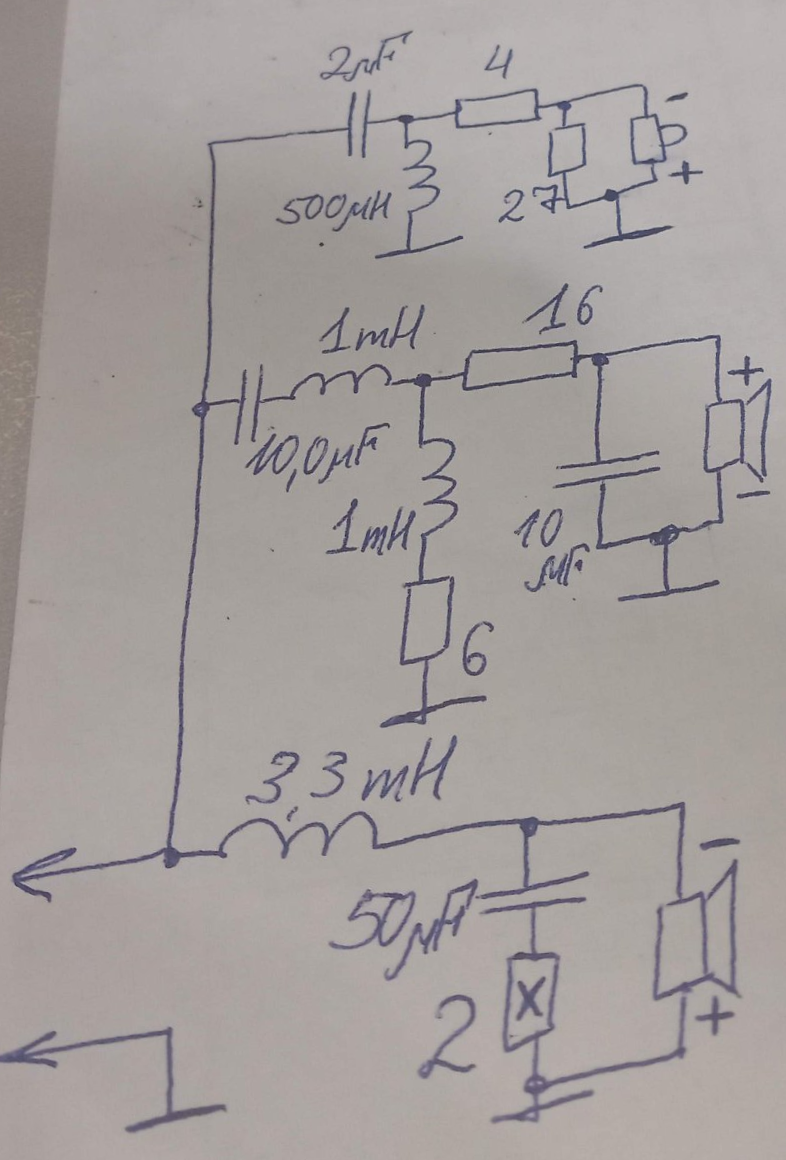 2μF
4
-
500μH
27
+
1mH
16
+
10,0μF
-
1mH
10
μF
6
3,3mH
-
50μF
X
2
+